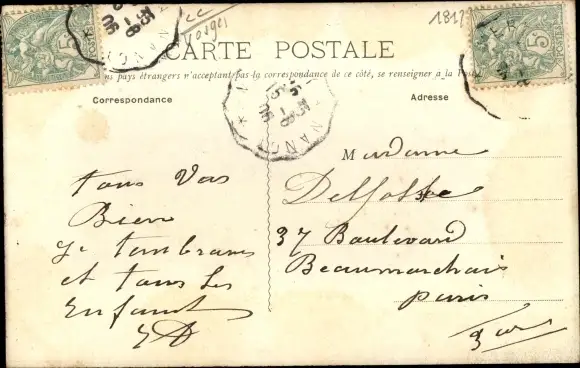 Vosges
1817
CARTE POSTALE
pays étrangers n'acceptant pas la correspondance de ce côté, se renseigner à la
Correspondance
Adresse
NANCY
Madame
Delfosse
37 Boulevard
Beaumarchais
Paris
tous vas
Bien
et tous les
Enfants